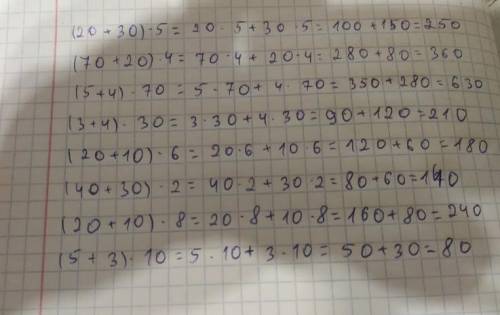 (20 + 30) · 5 = 20 · 5 + 30 · 5 = 100 + 150 = 250
(70 + 20) · 4 = 70 · 4 + 20 · 4 = 280 + 80 = 360
(5 + 4) · 70 = 5 · 70 + 4 · 70 = 350 + 280 = 630
(3 + 4) · 30 = 3 · 30 + 4 · 30 = 90 + 120 = 210
(20 + 10) · 6 = 20 · 6 + 10 · 6 = 120 + 60 = 180
(40 + 30) · 2 = 40 · 2 + 30 · 2 = 80 + 60 = 140
(20 + 10) · 8 = 20 · 8 + 10 · 8 = 160 + 80 = 240
(5 + 3) · 10 = 5 · 10 + 3 · 10 = 50 + 30 = 80